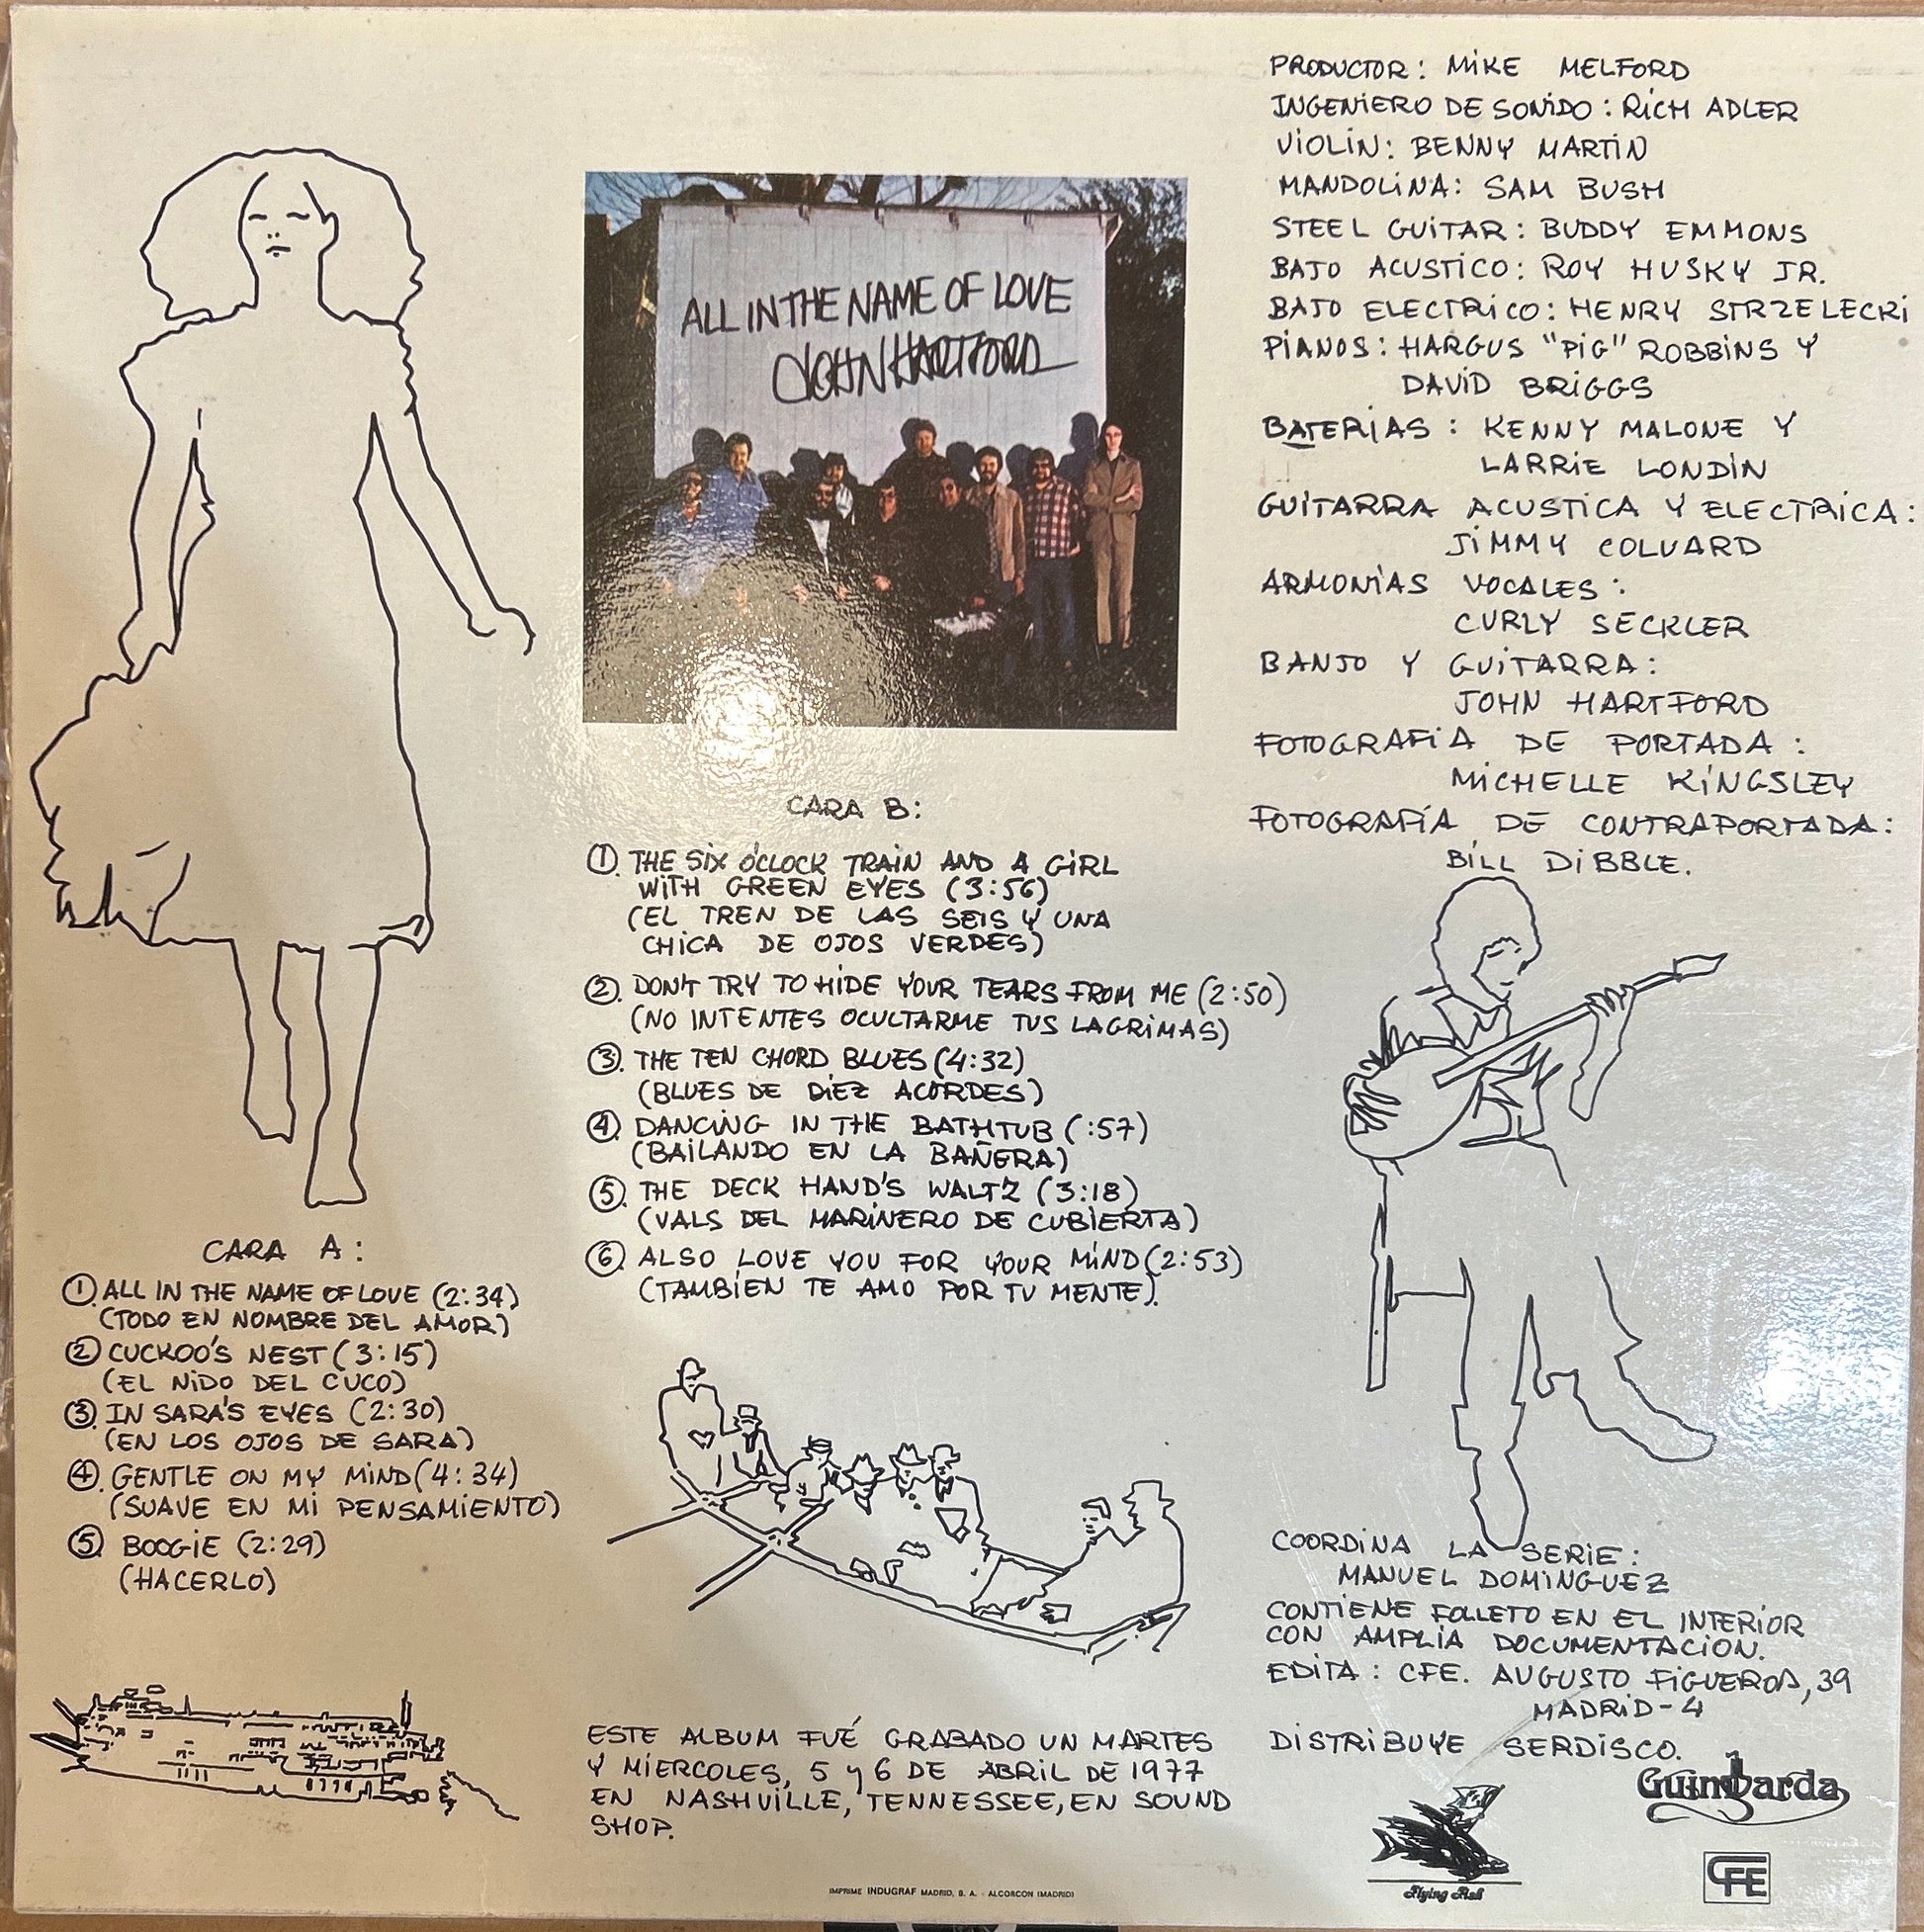 ALL IN THE NAME OF LOVE
JOHN HARTFORD
PRODUCTOR: MIKE MELFORD
INGENIERO DE SONIDO: RICH ADLER
VIOLIN: BENNY MARTIN
MANDOLINA: SAM BUSH
STEEL GUITAR: BUDDY EMMONS
BAJO ACUSTICO: ROY HUSKY JR.
BAJO ELECTRICO: HENRY STRZELECKI
PIANOS: HARGUS "PIG" ROBBINS Y
DAVID BRIGGS
BATERIAS: KENNY MALONE Y
LARRIE LONDIN
GUITARRA ACUSTICA Y ELECTRICA:
JIMMY COLVARD
ARMONIAS VOCALES:
CURLY SECKLER
BANJO Y GUITARRA:
JOHN HARTFORD
FOTOGRAFIA DE PORTADA:
MICHELLE KINGSLEY
FOTOGRAFÍA DE CONTRAPORTADA:
BILL DIBBLE.
CARA A:
1. ALL IN THE NAME OF LOVE (2:34)
(TODO EN NOMBRE DEL AMOR)
2 CUCKOO'S NEST (3:15)
(EL NIDO DEL CUCO)
3. IN SARA'S EYES (2:30)
(EN LOS OJOS DE SARA)
4. GENTLE ON MY MIND (4:34)
(SUAVE EN MI PENSAMIENTO)
5. BOOGIE (2:29)
(HACERLO)
CARA B:
1. THE SIX O'CLOCK TRAIN AND A GIRL
WITH GREEN EYES (3:56)
(EL TREN DE LAS SEIS Y UNA
CHICA DE OJOS VERDES)
2. DON'T TRY TO HIDE YOUR TEARS FROM ME (2:50)
(NO INTENTES OCULTARME TUS LAGRIMAS)
3. THE TEN CHORD BLUES (4:32)
(BLUES DE DIEZ ACORDES)
4. DANCING IN THE BATHTUB (:57)
(BAILANDO EN LA BAÑERA)
5. THE DECK HAND'S WALTZ (3:18)
(VALS DEL MARINERO DE CUBIERTA)
6. ALSO LOVE YOU FOR YOUR MIND (2:53)
(TAMBIEN TE AMO POR TU MENTE).
ESTE ALBUM FUÉ GRABADO UN MARTES
Y MIERCOLES, 5 y 6 DE ABRIL DE 1977
EN NASHVILLE, TENNESSEE, EN SOUND
SHOP.
COORDINA LA SERIE:
MANUEL DOMINGUEZ
CONTIENE FOLLETO EN EL INTERIOR
CON AMPLIA DOCUMENTACION.
EDITA: CFE. AUGUSTO FIGUEROA, 39
MADRID-4
DISTRIBUYE SERDISCO.
Guimbarda
Flying Fish
CFE
IMPRIME INDUGRAF MADRID, S. A. - ALCORCON (MADRID)